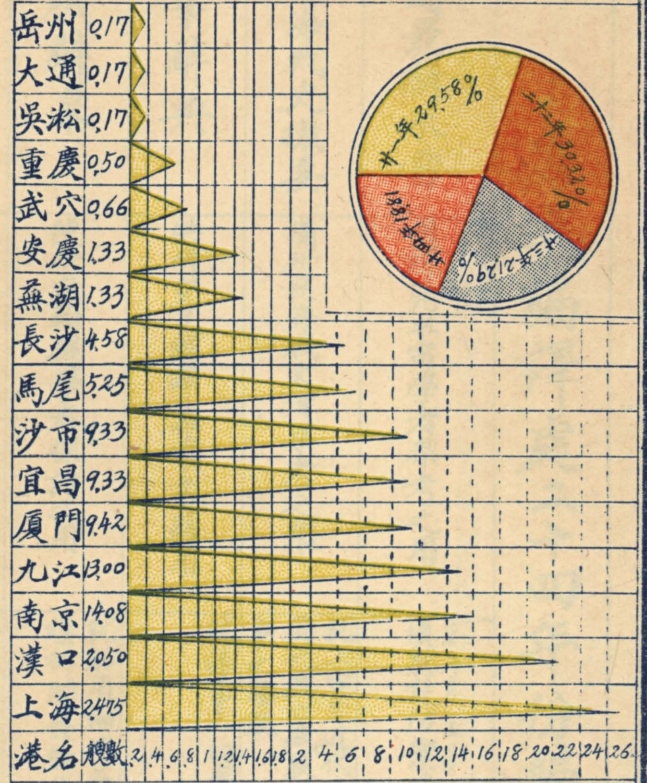 岳州 0.17
大通 0.17
吳淞 0.17
重慶 0.50
武穴 0.66
安慶 1.33
蕪湖 1.33
長沙 4.58
馬尾 5.25
沙市 9.33
宜昌 9.33
厦門 9.42
九江 13.00
南京 14.08
漢口 20.50
上海 24.75
港名 艘數 .2 .4 .6 .8 1 1.2 1.4 1.6 1.8 2 4 6 8 10 12 14 16 18 20 22 24 26
廿一年 29.58%
二十二年 30.32%
廿三年 21.29%
廿四年 18.81